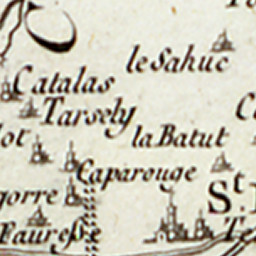 le Sahuc
Catalas
Tarsely
la Batut
Caparouge
gorre
St.
Fauresse